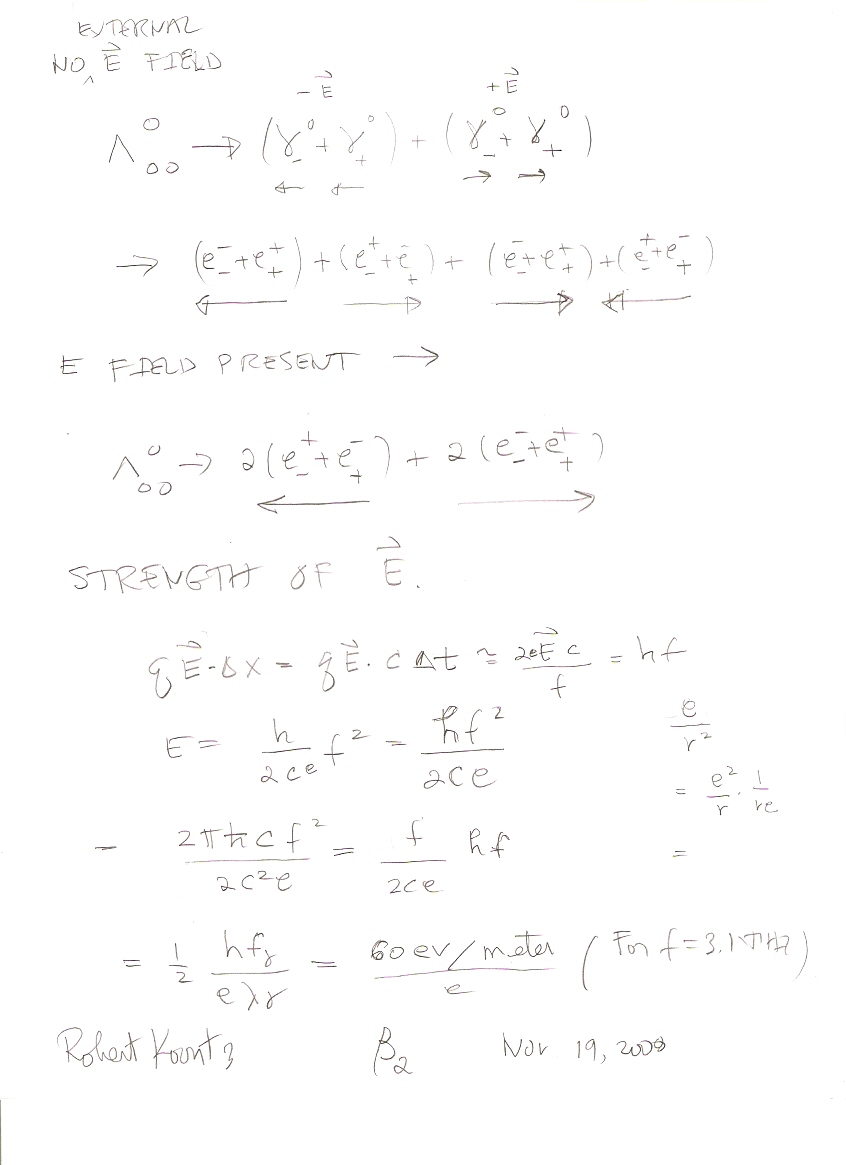 EXTERNAL
NO ^ E⃗ FIELD
-E⃗ +E⃗
Λ⁰₀₀ → (γ⁰₋ + γ⁰₊) + (γ⁰₋ + γ⁰₊)
← ← → →
→ (e⁻₋ + e⁺₊) + (e⁺₋ + e⁻₊) + (e⁻₋ + e⁺₊) + (e⁺₋ + e⁻₊)
← → → ←
E FIELD PRESENT →
Λ⁰₀₀ → 2(e⁺₋ + e⁻₊) + 2(e⁻₋ + e⁺₊)
← →
STRENGTH OF E⃗.
qE⃗·Δx = qE⃗·cΔt ≈ 2eE⃗c/f = hf
E = h/2ce f² = hf²/2ce
e/r²
= e²/r · 1/re
- 2πħcf²/2c²e = f/2ce hf
=
= 1/2 hfγ/eλγ = 60 ev/meter/e (For f = 3.1 THz)
Robert Koontz β₂ Nov 19, 2008